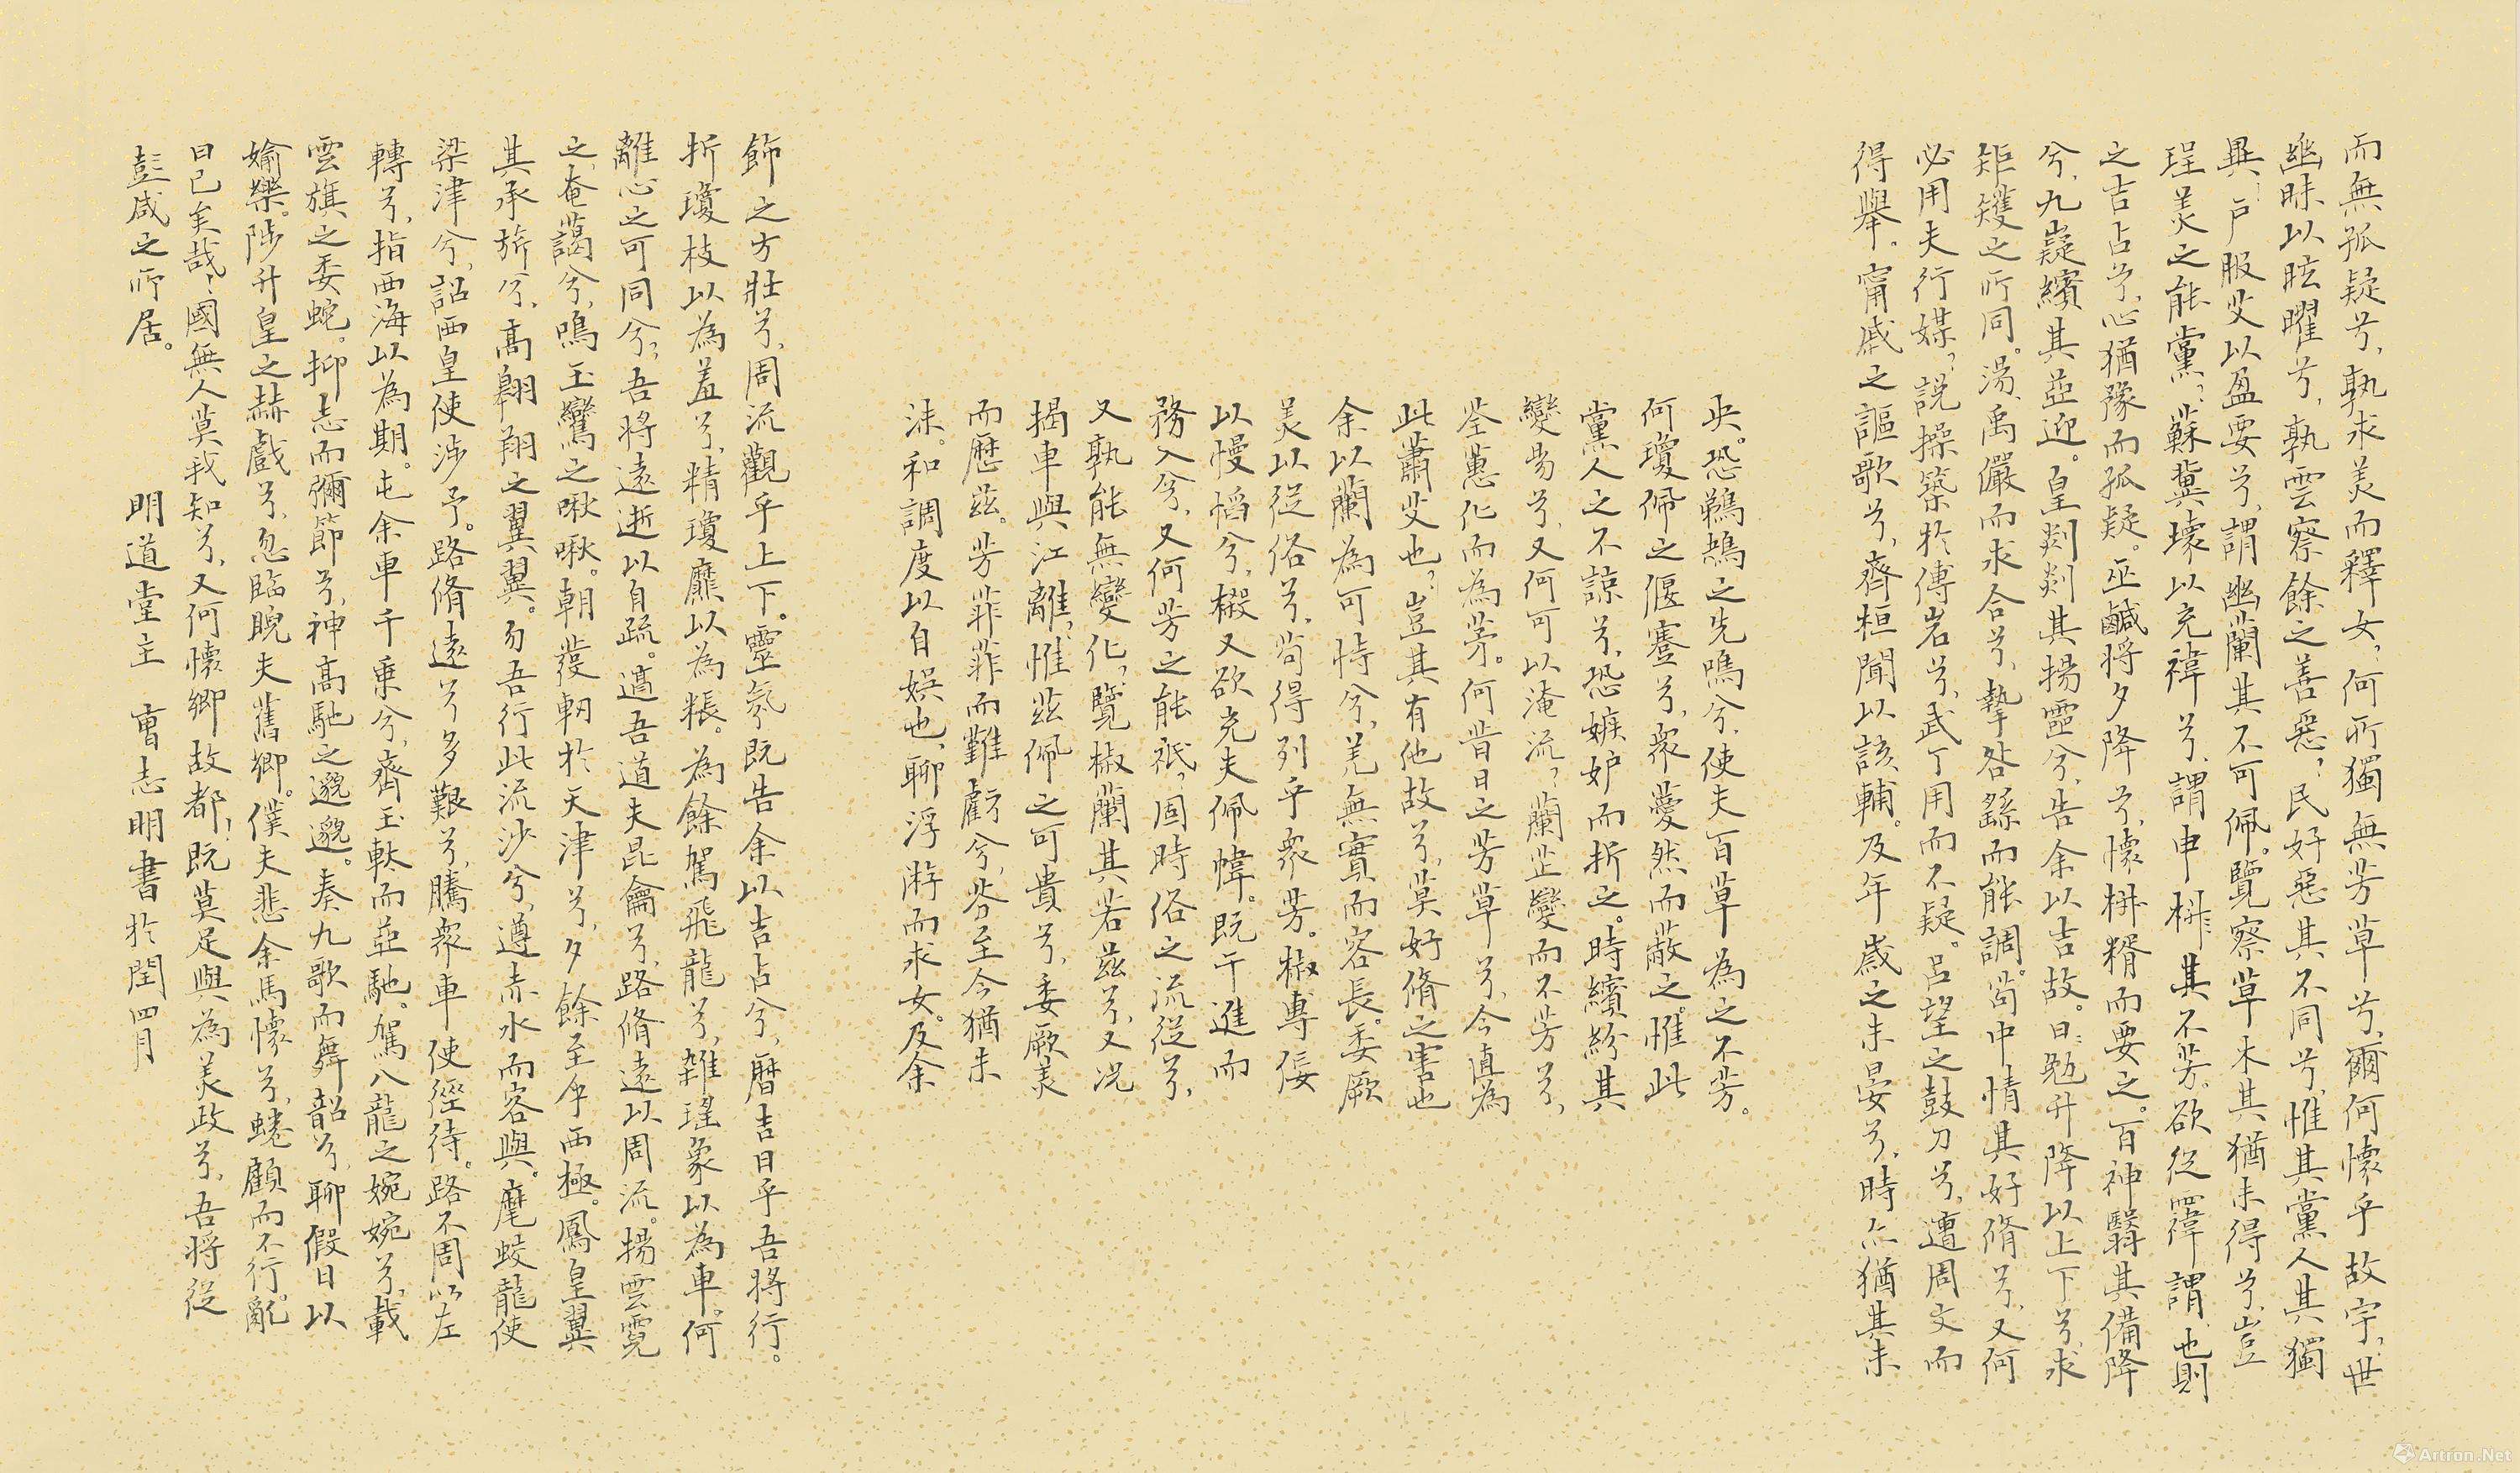 而無孤疑兮，孰求美而釋女？何所獨無芳草兮，爾何懷乎故宇？世
幽昧以眩曜兮，孰雲察餘之善惡？民好惡其不同兮，惟其黨人其獨
異！戶服艾以盈要兮，謂幽蘭其不可佩。覽察草木其猶未得兮，豈
珵美之能黨？蘇糞壤以充禕兮，謂申椒其不芳。欲從
之吉占兮，心猶豫而孤疑。巫鹹將夕降兮，懷椒糈而要之。百神翳其備降
兮，九嶷繽其並迎。皇剡剡其揚靈兮，告余以吉故。曰：勉升降以上下兮，求
矩矱之所同。湯、禹儼而求合兮，摯咎繇而能調。苟中情其好脩兮，又何
必用夫行媒？說操築於傅岩兮，武丁用而不疑。呂望之鼓刀兮，遭周文而
得舉。甯戚之謳歌兮，齊桓聞以該輔。及年歲之未晏兮，時亦猶其未
央。恐鵜鴂之先鳴兮，使夫百草為之不芳。
何瓊佩之偃蹇兮，衆薆然而蔽之。惟此
黨人之不諒兮，恐嫉妒而折之。時繽紛其
變易兮，又何可以淹流？蘭芷變而不芳兮，
荃蕙化而為茅。何昔日之芳草兮，今直為
此蕭艾也？豈其有他故兮，莫好脩之害也
余以蘭為可恃兮，羌無實而容長。委厥
美以從俗兮，苟得列乎衆芳。椒專佞
以慢慆兮，樧又欲充夫佩幃。既干進而
務入兮，又何芳之能祗？固時俗之流從兮，
又孰能無變化？覽椒蘭其若茲兮，又況
揭車與江離？惟茲佩之可貴兮，委厥美
而歷茲。芳菲菲而難虧兮，芬至今猶未
沬。和調度以自娛也，聊浮游而求女。及余
飾之方壯兮，周流觀乎上下。靈氛既告余以吉占兮，曆吉日乎吾將行。
折瓊枝以為羞兮，精瓊靡以為粻。為餘駕飛龍兮，雜瑤象以為車。何
離心之可同兮？吾將遠逝以自疏。邅吾道夫昆侖兮，路脩遠以周流。揚雲霓
之奄藹兮，鳴玉鸞之啾啾。朝發軔於天津兮，夕餘至乎西極。鳳皇翼
其承旂兮，高翱翔之翼翼。勿吾行此流沙兮，遵赤水而容與。麾蛟龍使
梁津兮，詔西皇使涉予。路脩遠兮多艱兮，騰衆車使徑待。路不周以左
轉兮，指西海以為期。屯余車千乘兮，齊玉軑而並馳。駕八龍之婉婉兮，載
雲旗之委蛇。抑志而彌節兮，神高馳之邈邈。奏九歌而舞韶兮，聊假日以
媮樂。陟升皇之赫戲兮，忽臨睨夫舊鄉。僕夫悲余馬懷兮，蜷顧而不行。亂
曰：已矣哉！國無人莫我知兮，又何懷鄉故都！既莫足與為美政兮，吾將從
彭咸之所居。
明道堂主 曹志明書於閏四月
Artron.Net